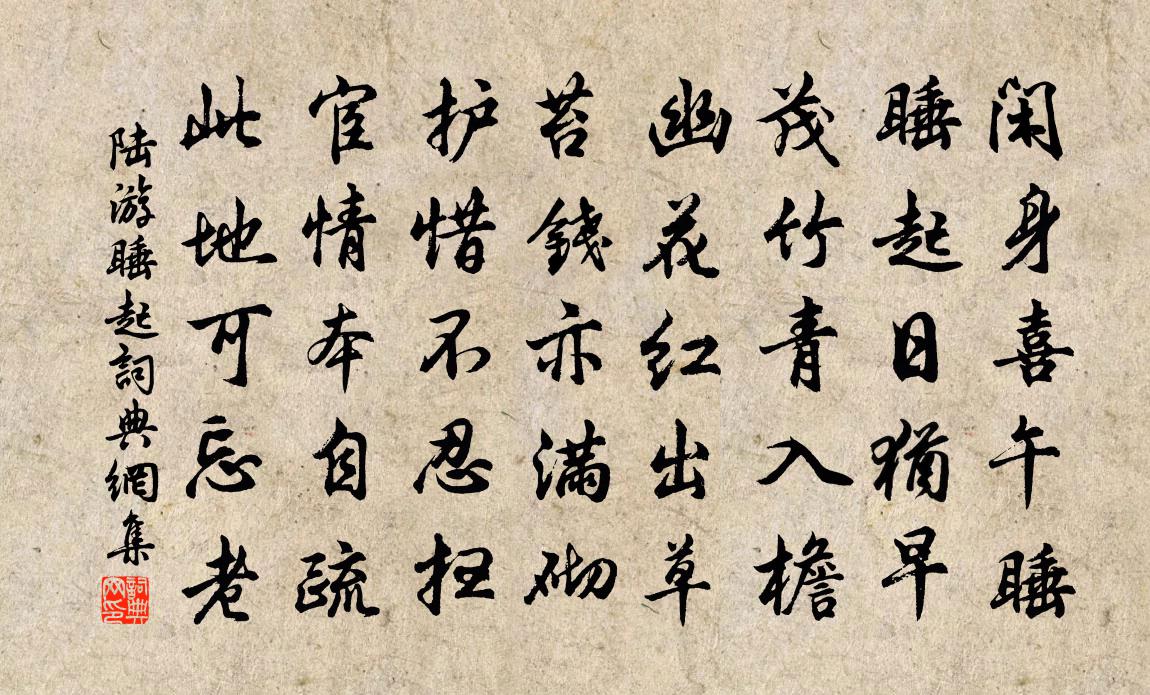 闲身喜午睡
睡起日犹早
茂竹青入檐
幽花红出草
苔錢亦满砌
护惜不忍扫
宦情本自疏
此地可忘老
陆游睡起詞典網集
詞典網印